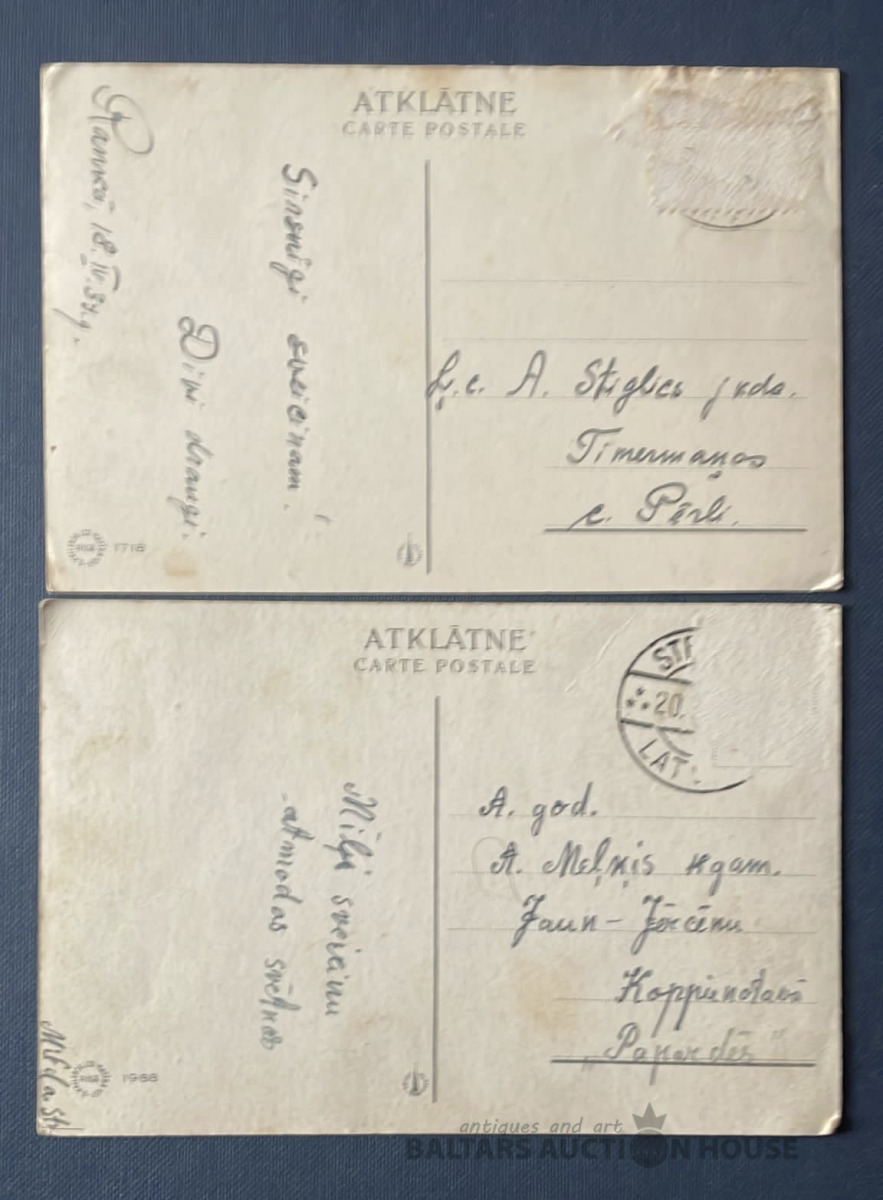 ATKLĀTNE
CARTE POSTALE
Rankā, 18. IV. 37. g.
Sirsnīgi sveicinam.
Divi draugi.
Ļ. c. A. Stiglics jkdz.
Timermaņos
c. Pērlī.
1718
ATKLĀTNE
CARTE POSTALE
STR
20.
LAT
Mīļi sveicinu
atmodas svētkos
Milda. St
A. god.
A. Meļķis kgam.
Jaun-Jērcēnu
Koppienotavā
„Papardēs"
1968
antiques and art
BALTARS AUCTION HOUSE